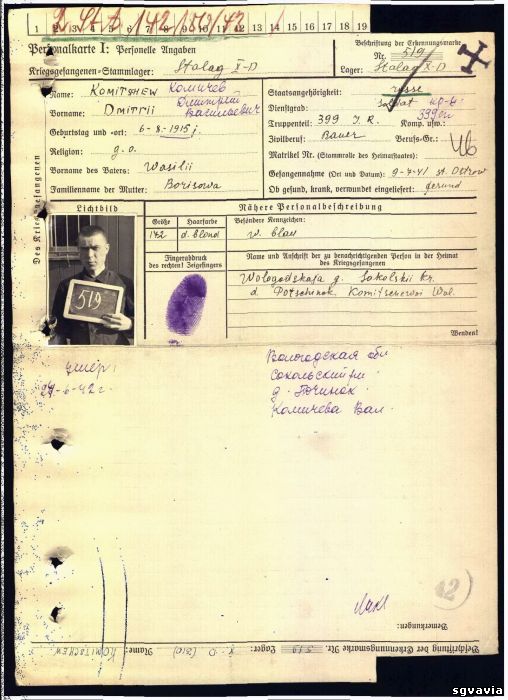 1 2 3 4 5 6 7 8 9 10 11 12 13 14 15 16 17 18 19
Personalkarte I: Personelle Angaben
Kriegsgefangenen-Stammlager: Stalag X-D
Beschriftung der Erkennungsmarke
Nr. 519
Lager: Stalag X-D
Des Kriegsgefangenen
Name: KOMITSHEW Комичев
Vorname: DMITRII Дмитрий Васильевич
Geburtstag und -ort: 6-8-1915
Religion: g.o.
Vorname des Vaters: Wasilii
Familienname der Mutter: Borisowa
Staatsangehörigkeit: russe
Dienstgrad: Soldat кр-ц
Truppenteil: 399 I.R. Komp. usw.: 399сп
Zivilberuf: Bauer Berufs-Gr.:
Matrikel Nr. (Stammrolle des Heimatstaates)
Gefangennahme (Ort und Datum): 9-7-41 st. Ostrow
Ob gesund, krank, verwundet eingeliefert: gesund
Lichtbild
519
Nähere Personalbeschreibung
Größe Haarfarbe Besondere Kennzeichen:
172 d. blond w. blau
Fingerabdruck
des rechten! Zeigefingers
Name und Anschrift der zu benachrichtigenden Person in der Heimat
des Kriegsgefangenen
Wologodskaja g. Sokolskii Kr.
d. Potschinok Komitschewoi Wal.
Wenden!
умер
27-6-42г.
Вологодская обл
Сокольский
д. Починок
Комичева Вал.
Bemerkungen:
Beschriftung der Erkennungsmarke Nr. 519 Lager: X-D (310) Name: KOMITSCHEW
sgvavia